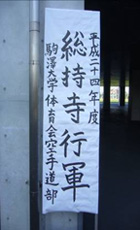 平成二十四年度
総持寺行軍
駒澤大学体育会空手道部